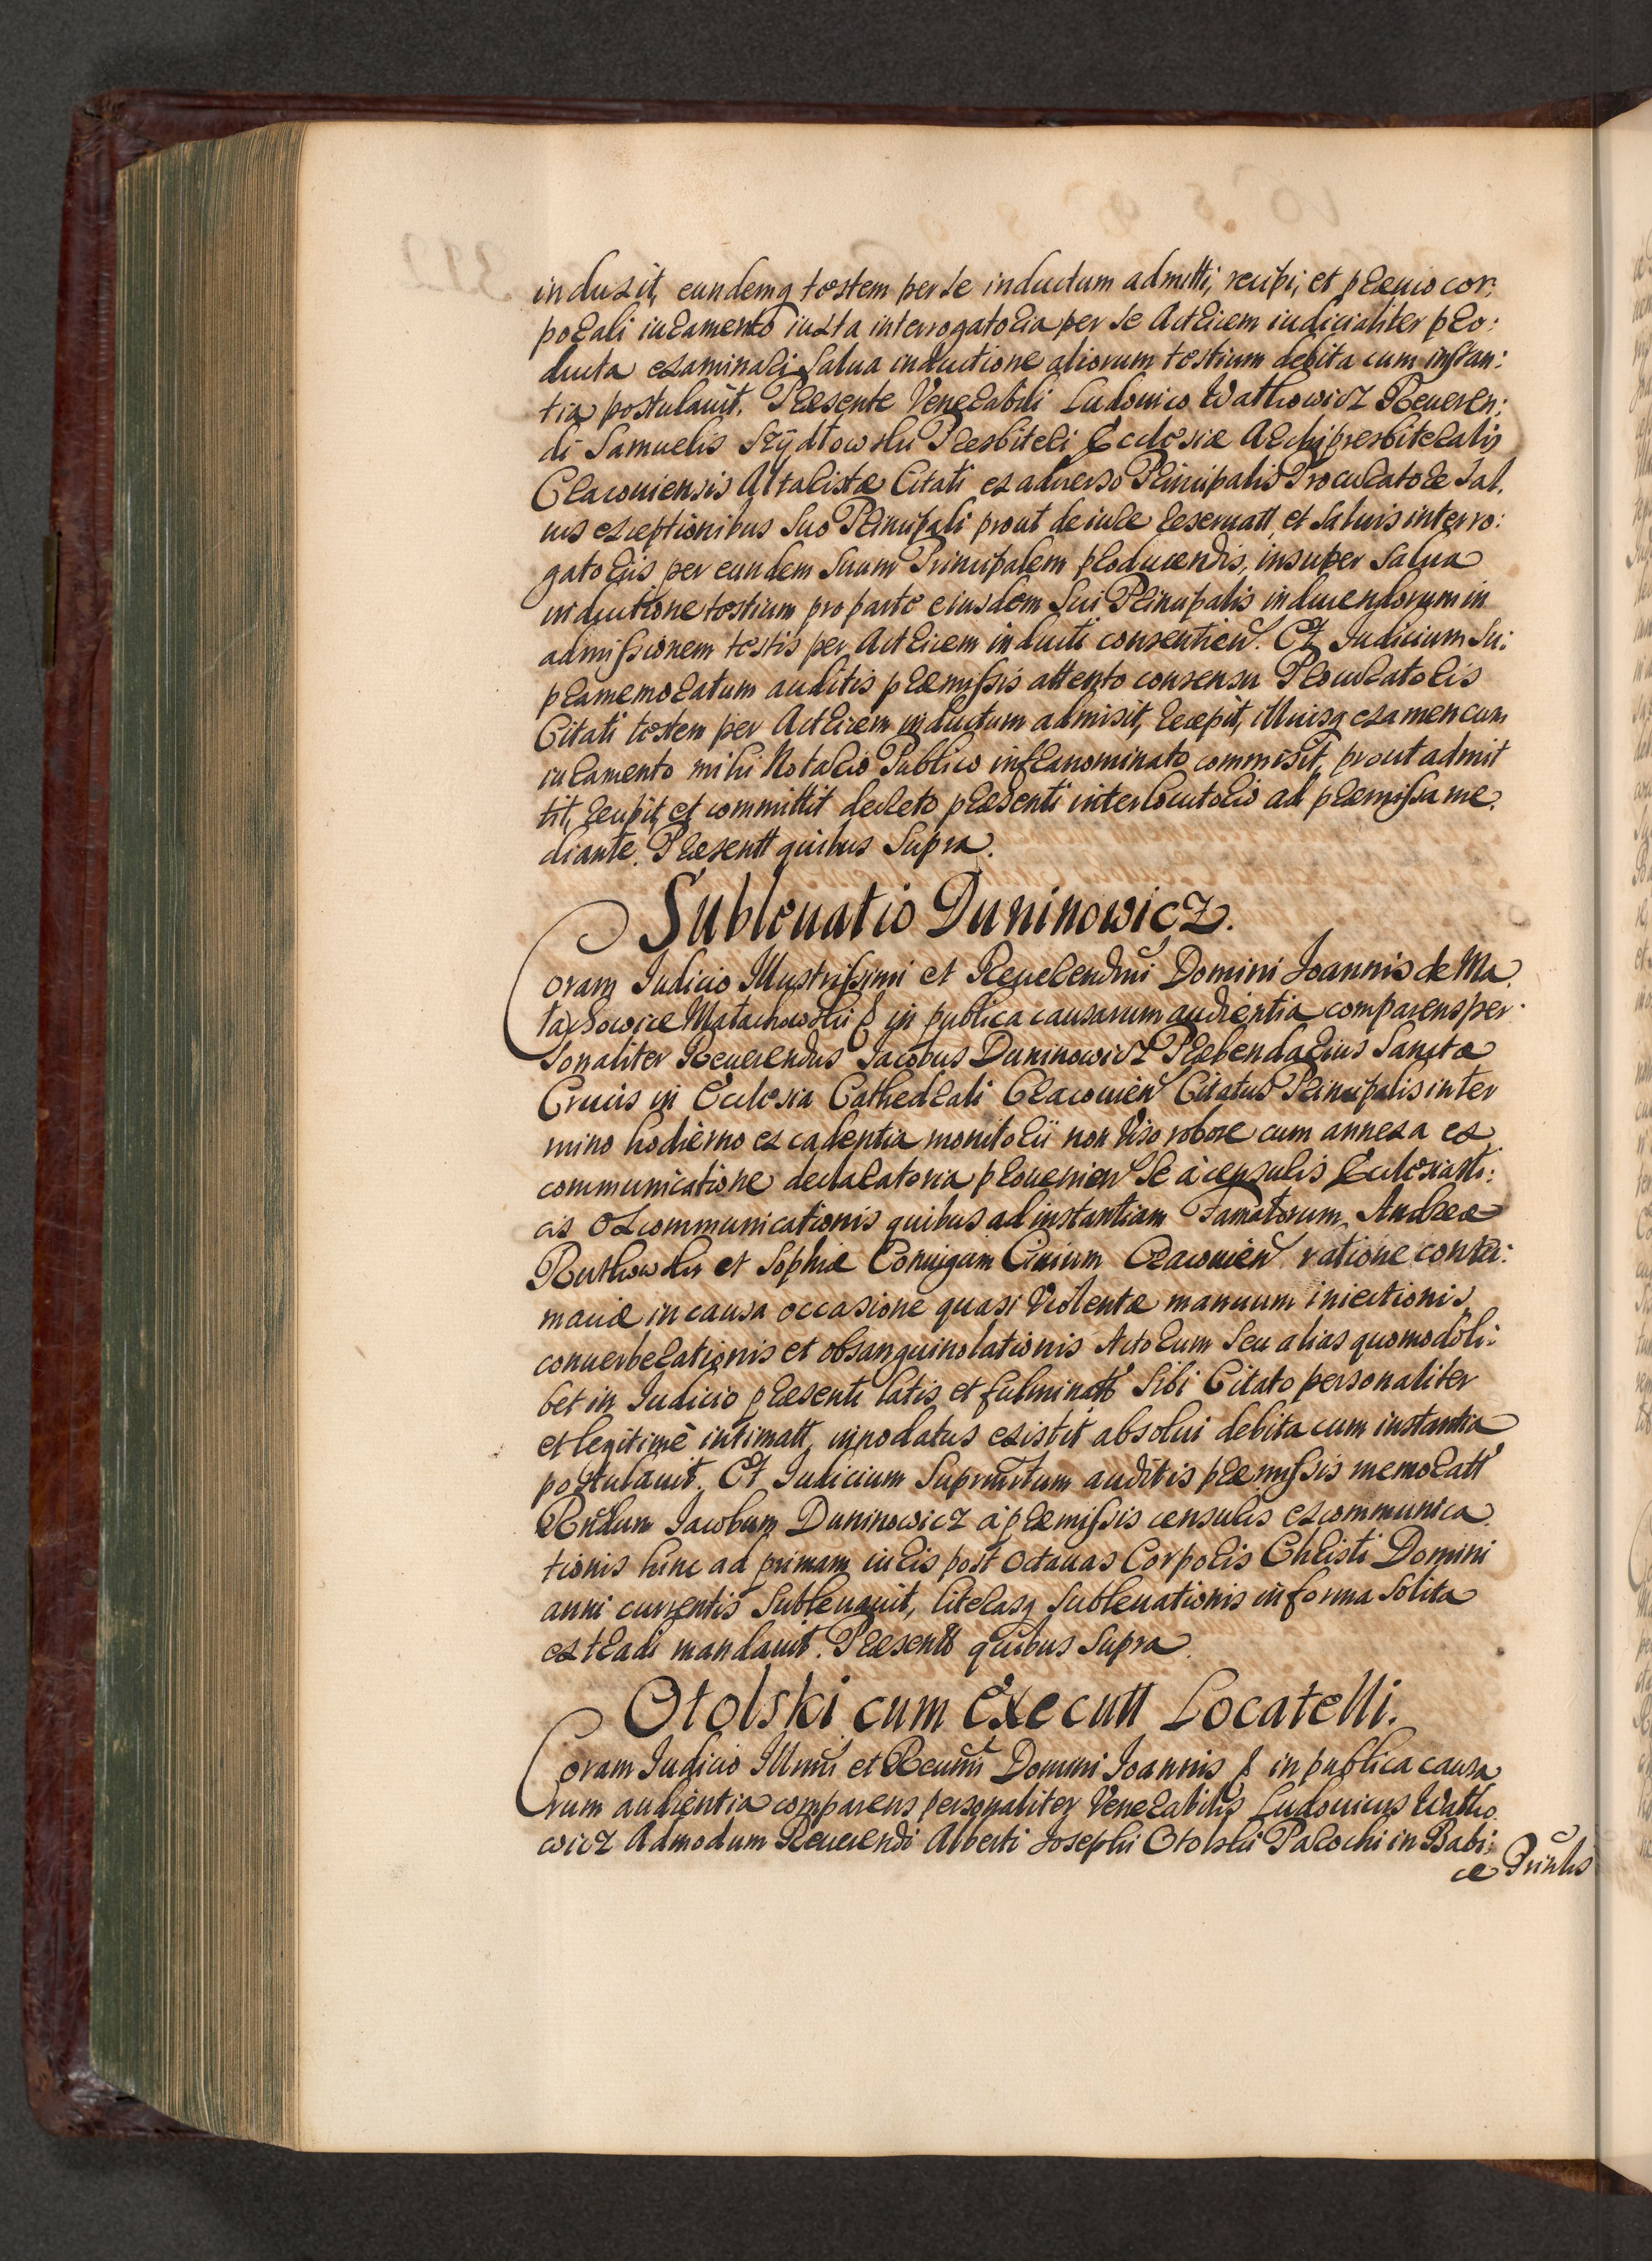 induxit, eundemq testem per se inductum admitti, recipi, et prævio cor:
porali iuramento iuxta interrogatoria per se Actricem iudicialiter pro:
ducta examinari salua inductione aliorum testium debita cum instan:
tia postulauit. Præsente Venerabili Ludouico Wathowicz Reueren:
di Samuelis Szÿdłowski Presbiteri Ecclesiæ Archipresbiteralis
Cracouiensis Altaristæ Citati ex aduerso Principalis Procuratore Sal.
uis exceptionibus suo Principali prout de iure reseruatt, et saluis interro:
gatoriis per eundem suum Principalem producendis, insuper salua
inductione testium pro parte eiusdem sui Principalis inducendorum in
admissionem testis per Actricem inducti consentien. Et Iudicium su:
pramemoratum auditis præmissis attento consensu Procuratoris
Citati testem per Actricem inductum admisit, recepit, illiusq examen cum
iuramento mihi Notario Publico infranominato commisit, prout admit
tit, recipit, et committit decreto præsenti interlocutorio ad præmissa me.
diante. Præsentt quibus supra.
Subleuatio Duninowicz.
Coram Iudicio Illustrissimi et Reuerendmi Domini Ioannis de Ma
łachowice Małachowski & in publica causarum audientia comparens per
sonaliter Reuerendus Iacobus Duninowicz Præbendarius Sanctæ
Crucis in Ecclesia Cathedrali Cracouien Citatus Principalis in ter
mino hodierno ex cadentia monitorii non viso robore cum annexa ex
communicatione declaratoria prouenien se à censuris Ecclesiasti:
cis excommunicationis quibus ad instantiam Famatorum Andreæ
Ruthowski et Sophiæ Coniugam Ciuium Cracouien ratione contu:
maciæ in causa occasione quasi violentæ manuum iniectionis
conuerberationis et obsanguinolationis Actorum seu alias quomodoli:
bet in Iudicio præsenti latis et fulminatt sibi Citato personaliter
et legitimè intimatt, innodatus existit absolui debita cum instantia
postulauit. Et Iudicium Suprascriptum auditis præmissis memoratt
Rndum Iacobum Duninowicz à præmissis censuris excommunica
tionis hinc ad primam iuris post octauas Corporis Christi Domini
anni currentis subleuauit, literasq subleuationis in forma solita
extradi mandauit. Præsentt quibus supra.
Otolski cum Executt Locatelli.
Coram Iudicio Illmi et Reumi Domini Ioannis & in publica causa
rum audientia comparens personaliter Venerabilis Ludouicus Watho
wicz Admodum Reuerendi Alberti Iosephi Otolski Parochi in Babi:
ce Prinlis